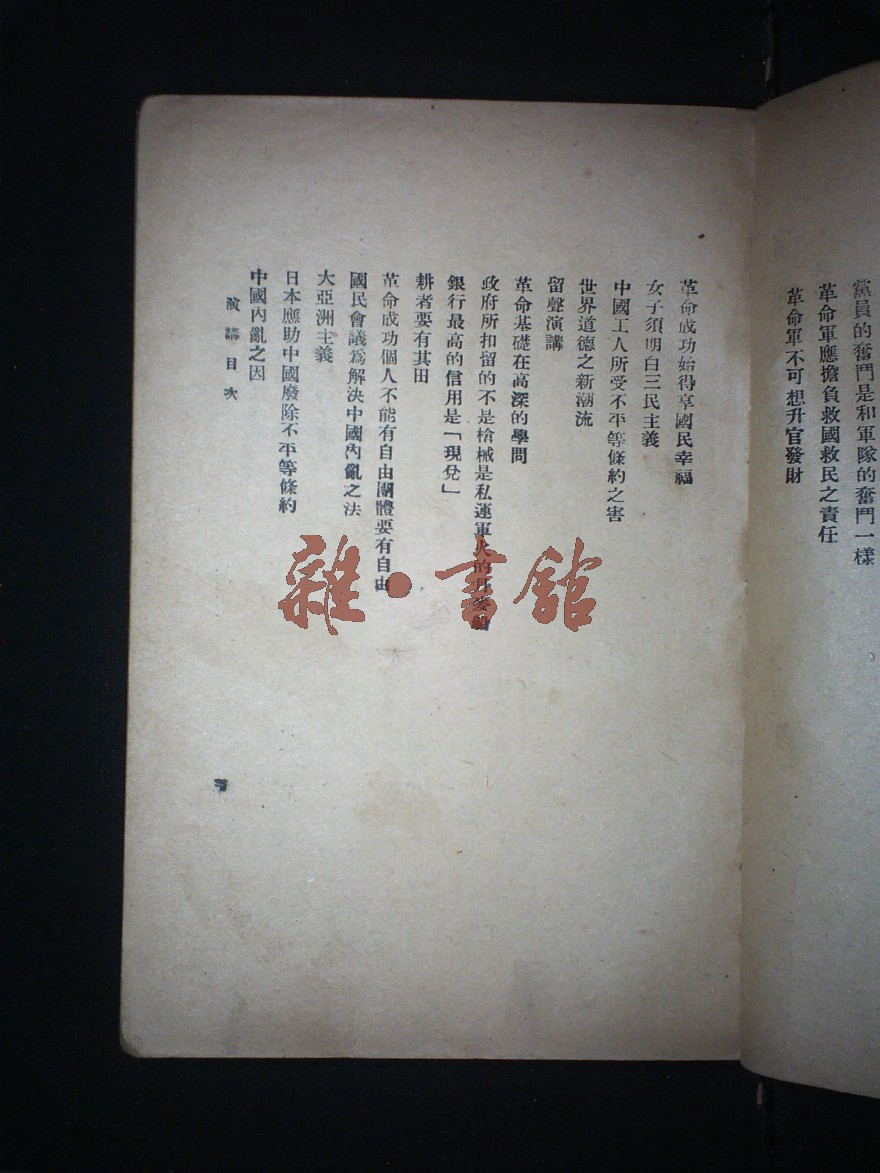 黨員的奮鬥是和軍隊的奮鬥一樣
革命軍應擔負救國救民之責任
革命軍不可想升官發財
革命成功始得享國民幸福
女子須明白三民主義
中國工人所受不平等條約之害
世界道德之新潮流
留聲演講
革命基礎在高深的學問
政府所扣留的不是槍械是私運軍火的
銀行最高的信用是「現兌」
耕者要有其田
革命成功個人不能有自由團體要有自由
國民會議爲解決中國內亂之法
大亞洲主義
日本應助中國廢除不平等條約
中國內亂之因
演講目次
雜·書館